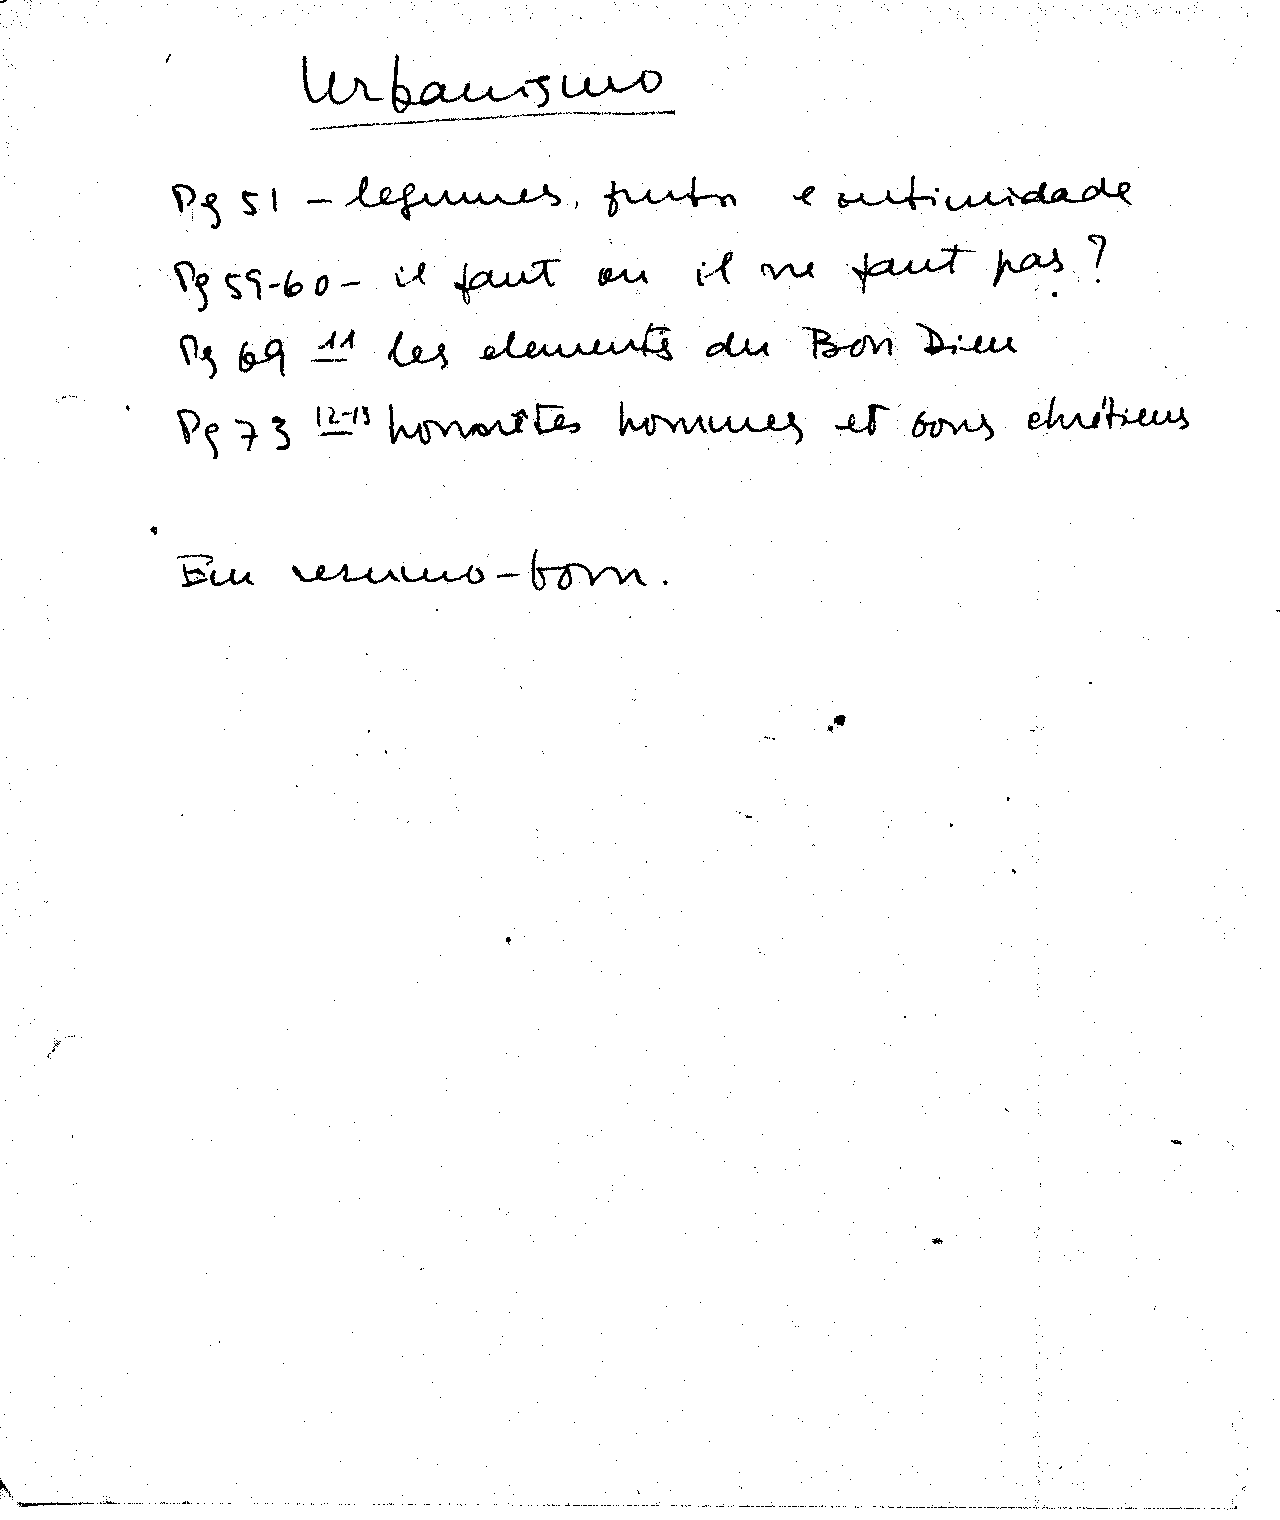 Urbanismo
Pg 51 - legumes, frutos e intimidade
Pg 59-60 - il faut ou il ne faut pas?
Pg 69 11 les elements du Bon Dieu
Pg 73 12-13 honnêtes hommes et bons chrétiens
Em resumo - bom.